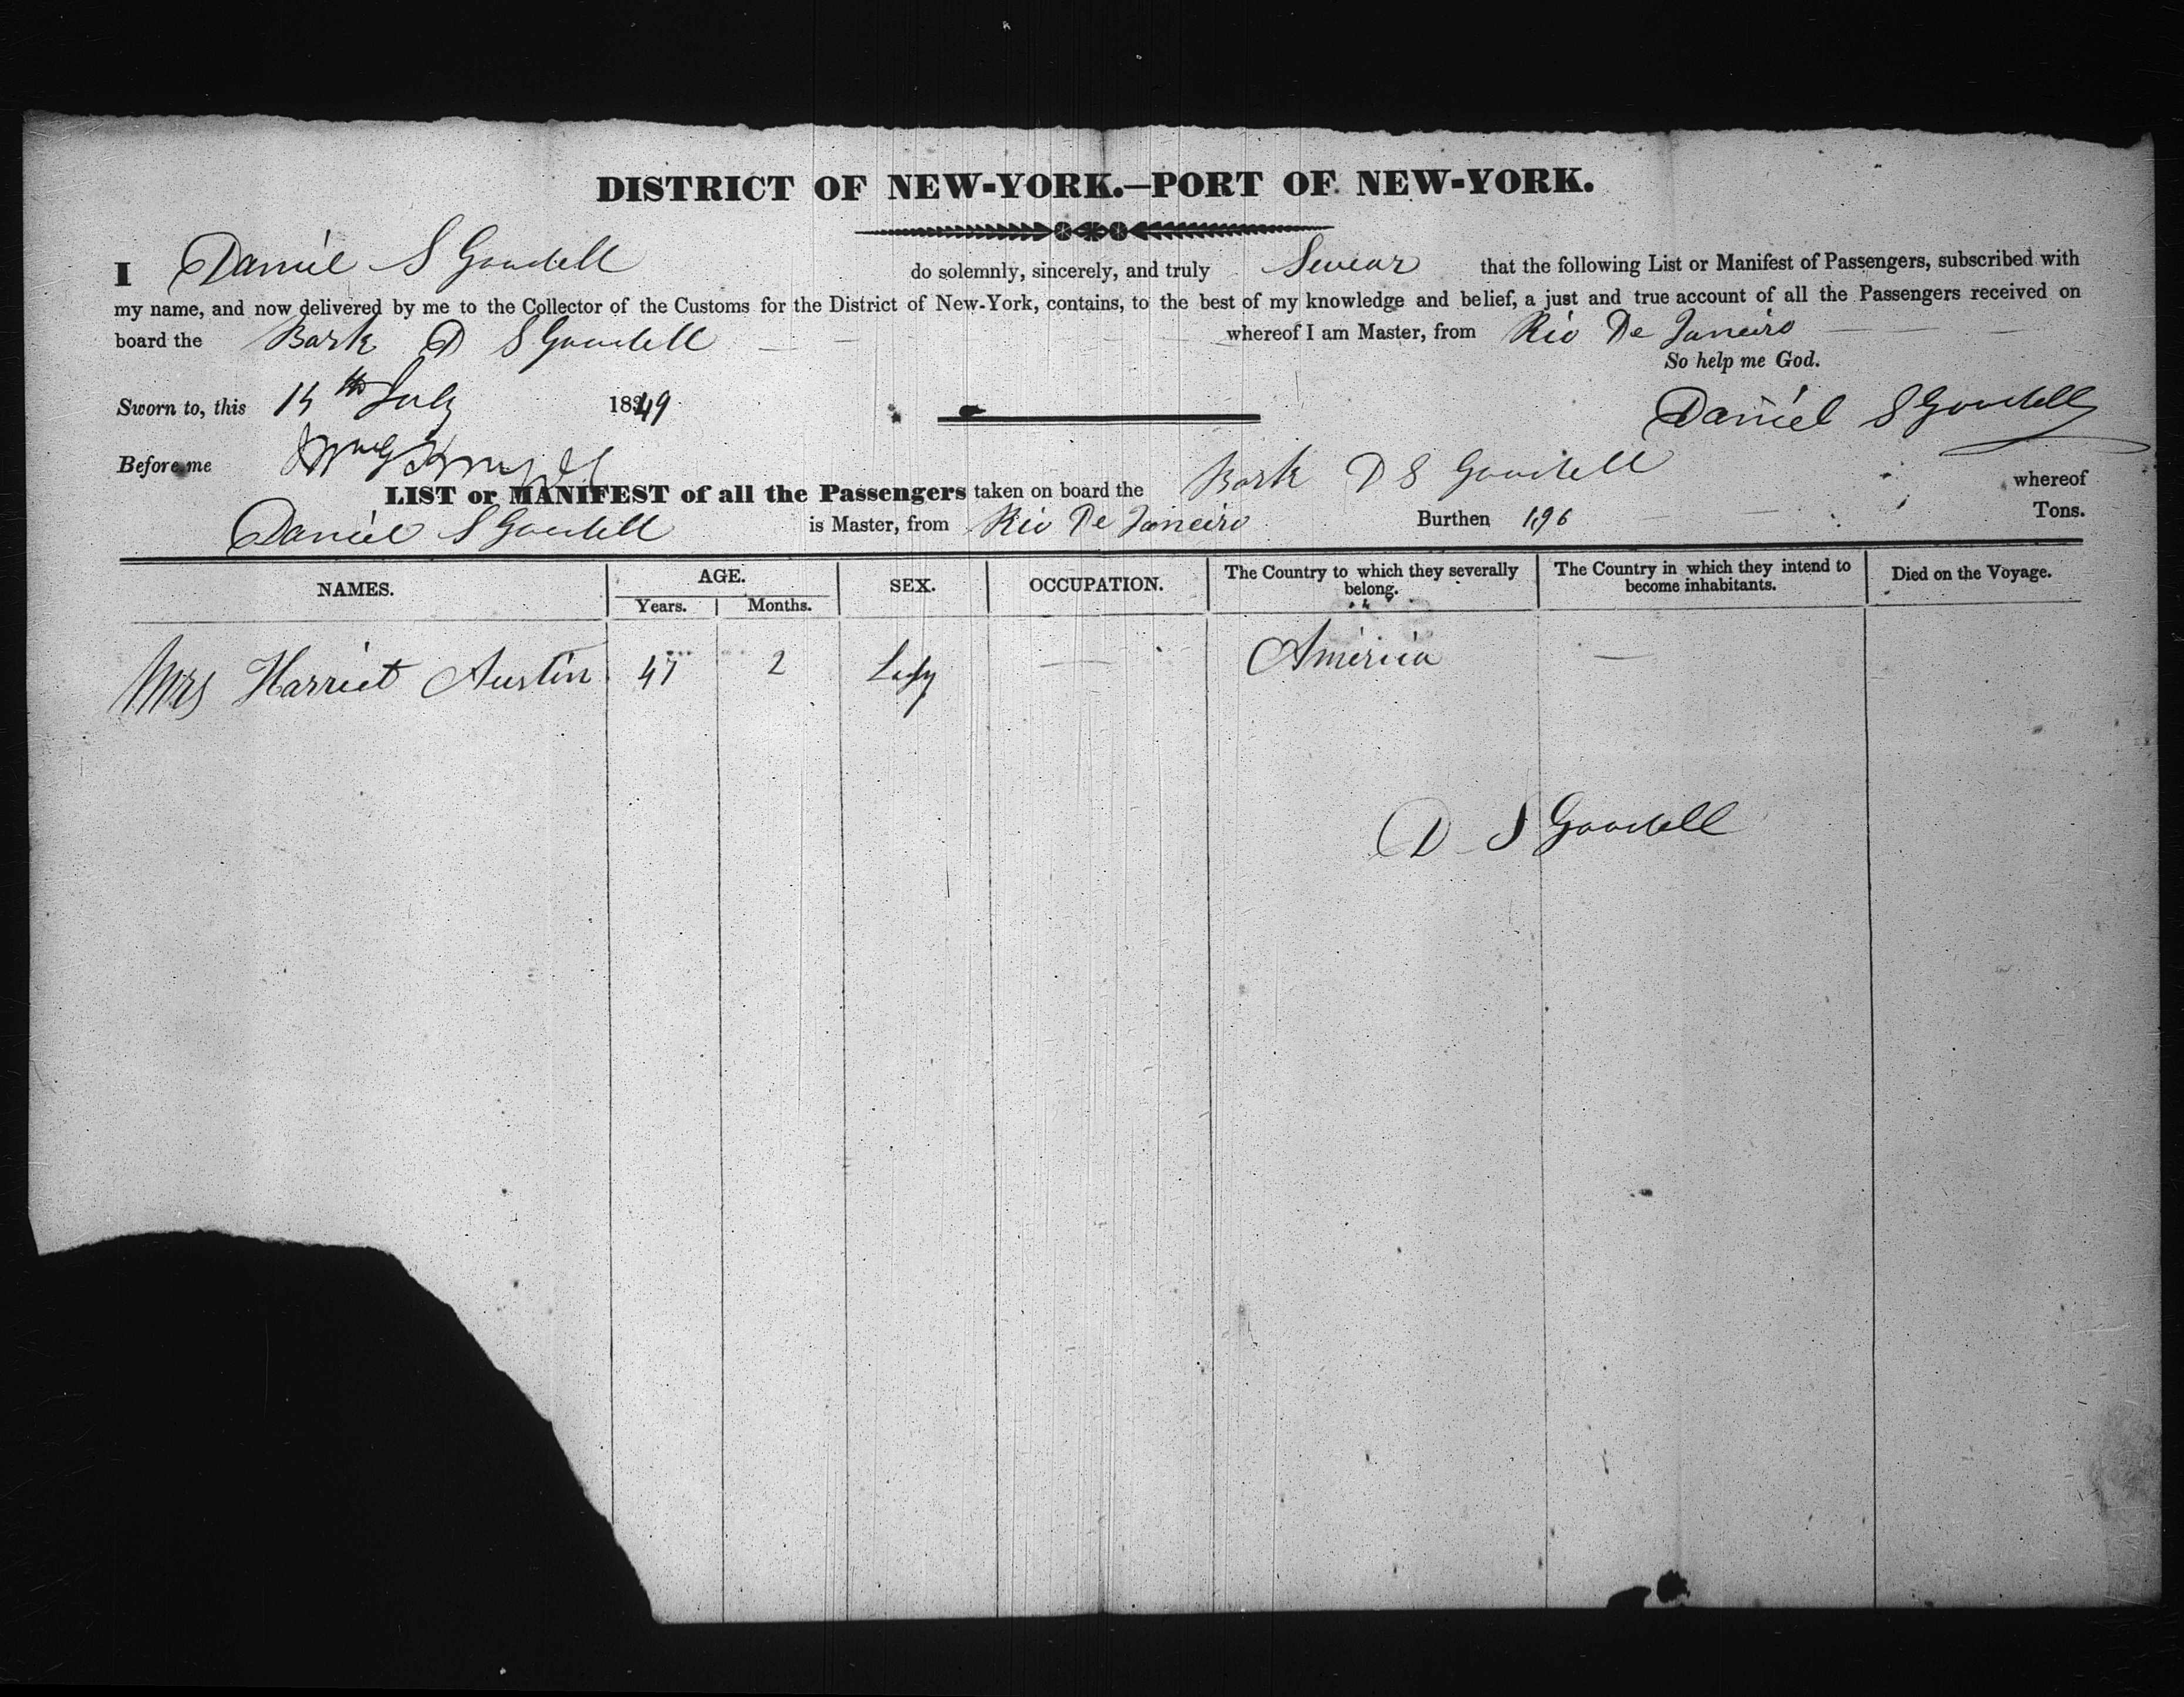 DISTRICT OF NEW-YORK.—PORT OF NEW-YORK.
I Daniel S Goodell do solemnly, sincerely, and truly Swear that the following List or Manifest of Passengers, subscribed with
my name, and now delivered by me to the Collector of the Customs for the District of New-York, contains, to the best of my knowledge and belief, a just and true account of all the Passengers received on
board the Bark D S Goodell whereof I am Master, from Rio De Janeiro
So help me God.
Sworn to, this 15th July 1849
Daniel S Goodell
Before me
LIST or MANIFEST of all the Passengers taken on board the Bark D S Goodell whereof
Daniel S Goodell is Master, from Rio De Janeiro Burthen 196 Tons.
NAMES. AGE. SEX. OCCUPATION. The Country to which they severally belong. The Country in which they intend to become inhabitants. Died on the Voyage.
Years. Months.
Mrs Harriet Austin 47 2 Lady — America —
D S Goodell